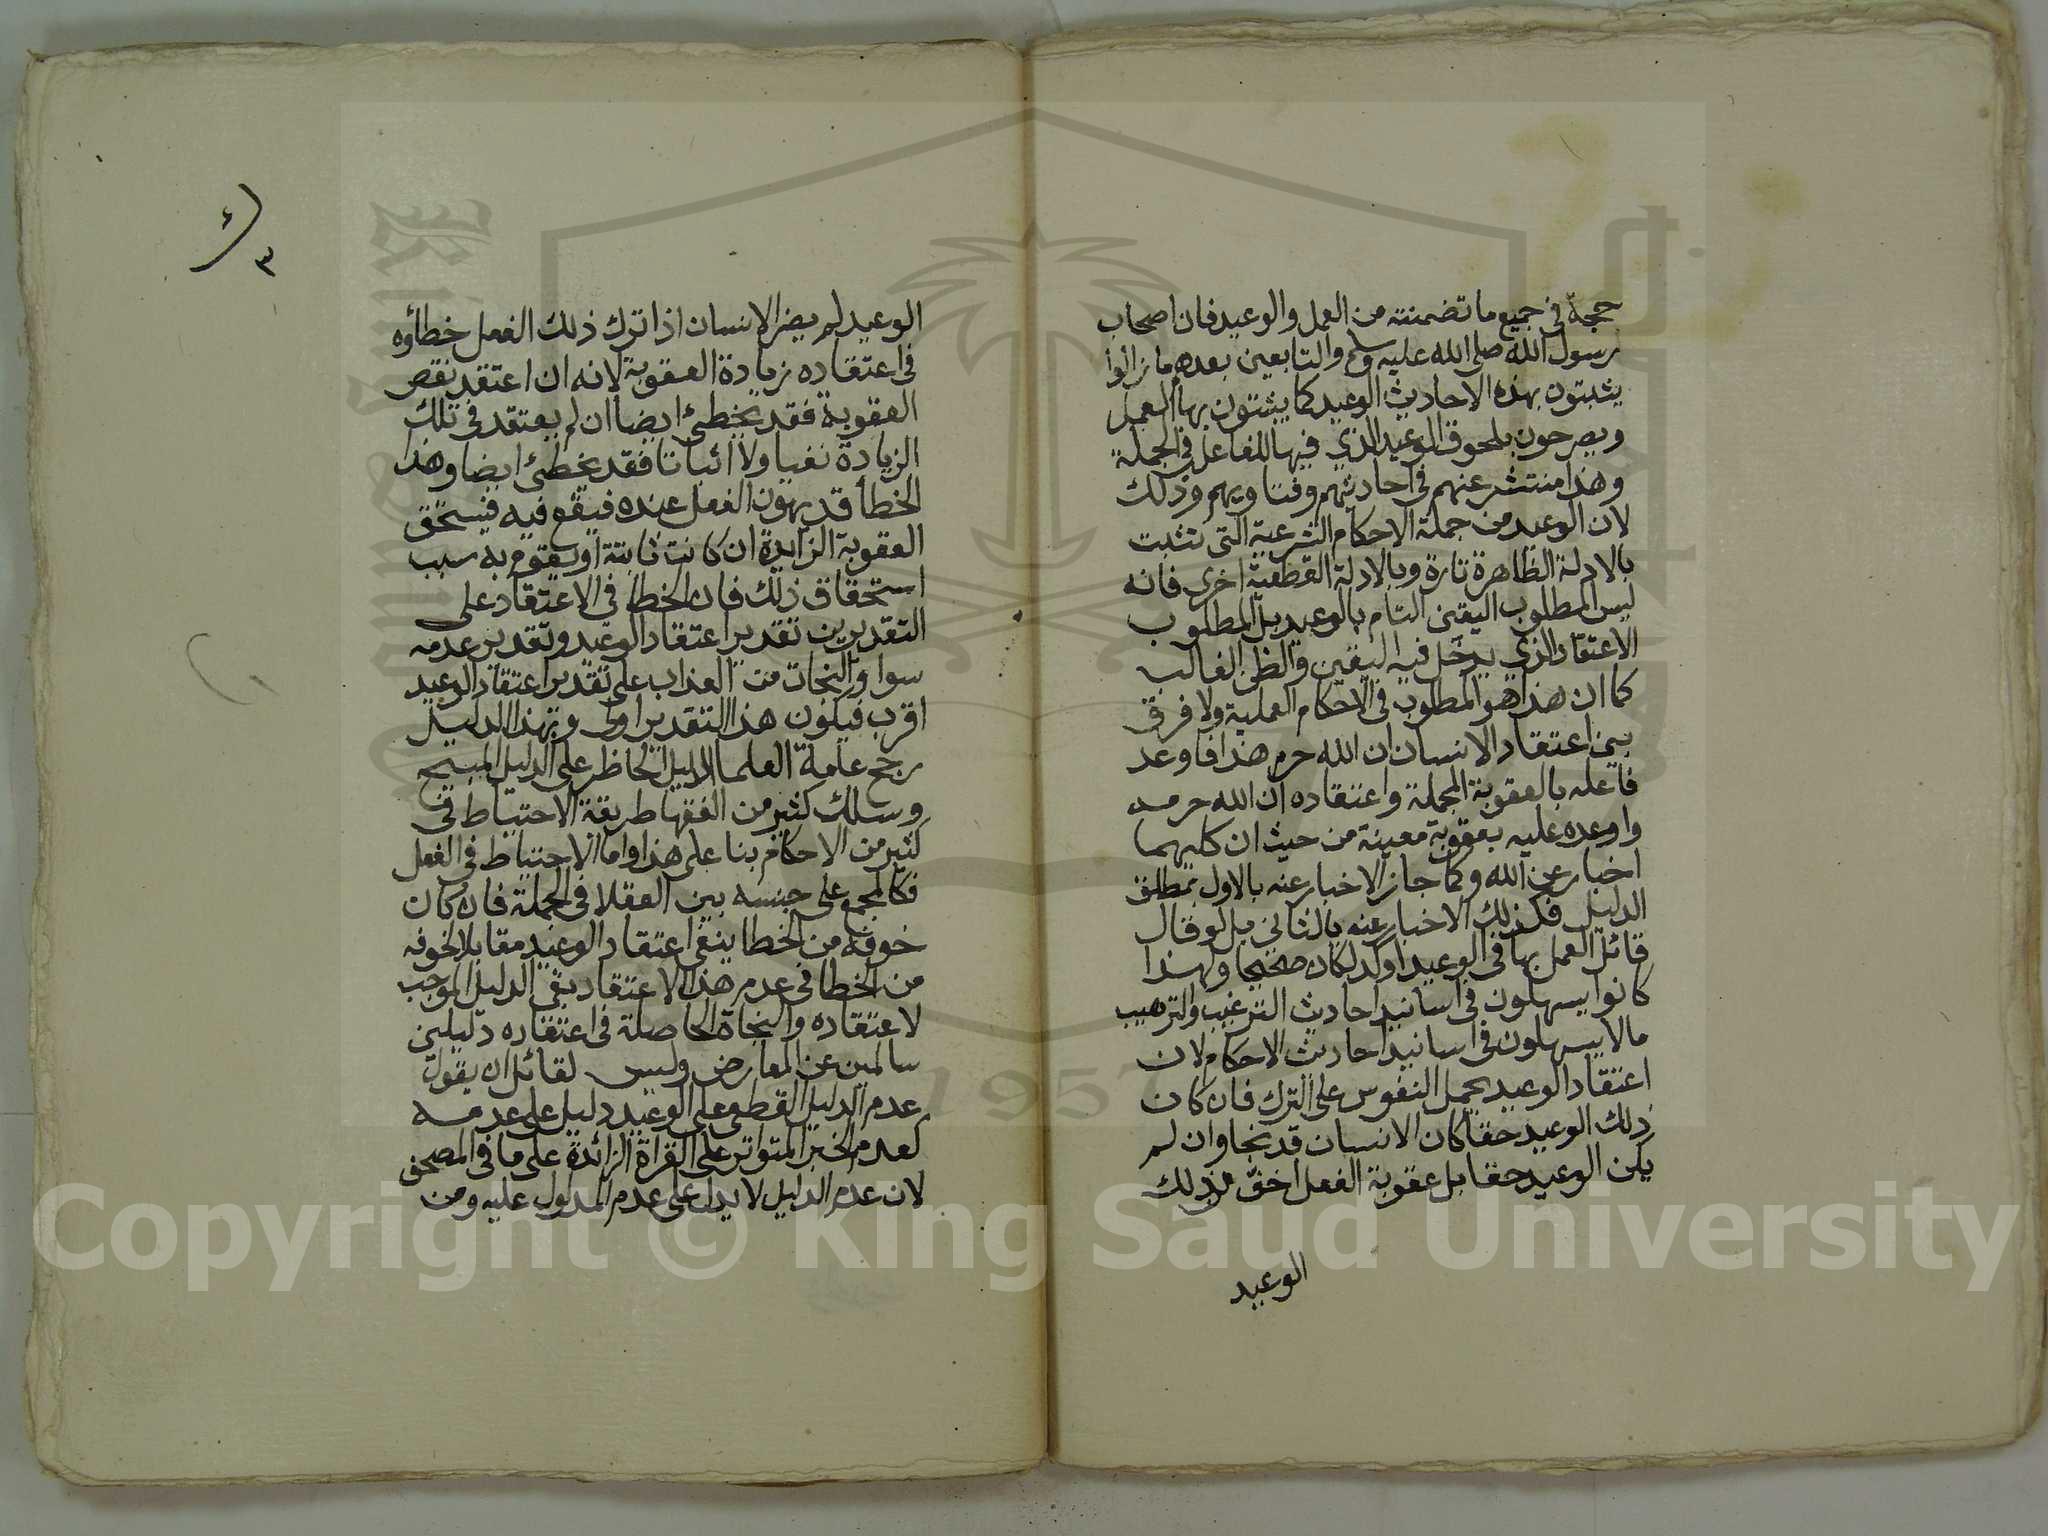 حجة في جميع ما تضمنته من العمل والوعيد فان اصحاب
رسول الله صلى الله عليه وسلم والتابعين بعدهم ما زالوا
يثبتون بهذه الاحاديث الوعيد كما يثبتون بها العمل
ويصرحون بلحوق الوعيد الذي فيها للفاعل في الجملة
وهذا منتشر عنهم في احاديثهم وفتاويهم وذلك
لان الوعيد من جملة الاحكام الشرعية التي تثبت
بالادلة الظاهرة تارة وبالادلة القطعية اخرى فانه
ليس المطلوب اليقين التام بالوعيد بل المطلوب
الاعتقاد الذي يدخل فيه اليقين والظن الغالب
كما ان هذا هو المطلوب في الاحكام العملية ولا فرق
بين اعتقاد الانسان ان الله حرم هذا فاوعد
فاعله بالعقوبة المجملة واعتقاده ان الله حرمه
واوعده عليه بعقوبة معينة من حيث ان كليهما
اخبار عن الله وكما جاز الاخبار عنه بالاول بمطلق
الدليل فكذلك الاخبار عنه بالثاني بل لو قال
قائل العمل بها في الوعيد اوكد لكان صحيحا ولهذا
كانوا يسهلون في اسانيد احاديث الترغيب والترهيب
مالا يسهلون في اسانيد احاديث الاحكام لان
اعتقاد الوعيد يحمل النفوس على الترك فان كان
ذلك الوعيد حقا كان الانسان قد نجا وان لم
يكن الوعيد حقا بل عقوبة الفعل اخف من ذلك
الوعيد
ك
٣
الوعيد لم يضر الانسان اذا ترك ذلك الفعل خطأوه
في اعتقاده زيادة العقوبة لانه ان اعتقد نقص
العقوبة فقد يخطئ ايضا ان لم يعتقد في تلك
الزيادة نفيا ولا اثباتا فقد يخطئ ايضا وهذا
الخطأ قد يهون الفعل عنده فيقع فيه فيستحق
العقوبة الزايدة ان كانت ثابتة او يقوم به سبب
استحقاق ذلك فان الخطا في الاعتقاد على
التقديرين تقدير اعتقاد الوعيد وتقدير عدمه
سوا والنجات من العذاب على تقدير اعتقاد الوعيد
اقرب فيكون هذا التقدير اولى وبهذا الدليل
رجح عامة العلما الدليل الحاظر على الدليل المبيح
وسلك كثير من الفقها طريقة الاحتياط في
كثير من الاحكام بنا على هذا واما الاحتياط في الفعل
فكالمجمع على جنسه بين العقلا في الجملة فان كان
خوفه من الخطا ينفي اعتقاد الوعيد مقابلا لخوفه
من الخطا في عدم هذا الاعتقاد بقى الدليل الموجب
لاعتقاده والنجاة الحاصلة في اعتقاده دليلين
سالمين عن المعارض وليس لقائل ان يقول
عدم الدليل القطعي على الوعيد دليل على عدمه
كعدم الخبر المتواتر على القراة الزائدة على ما في المصحف
لان عدم الدليل لا يدل على عدم المدلول عليه ومن
1957
Copyright © King Saud University